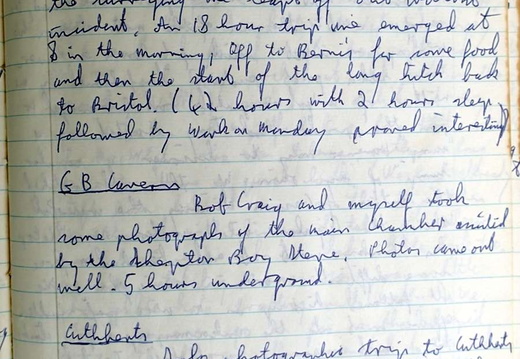 incident. An 18 hour trip we emerged at
8 in the morning, off to Bernie's for some food
and then the start of the long hitch back
to Bristol (42 hours with 2 hours sleep
followed by work on monday proved interesting)
GB Cavern
Bob Craig and myself took
some photographs of the main chamber assisted
by the Shepton Boy Steve. Photos came out
well. 5 hours underground.
Cuthberts
photographic trip to Cuthberts